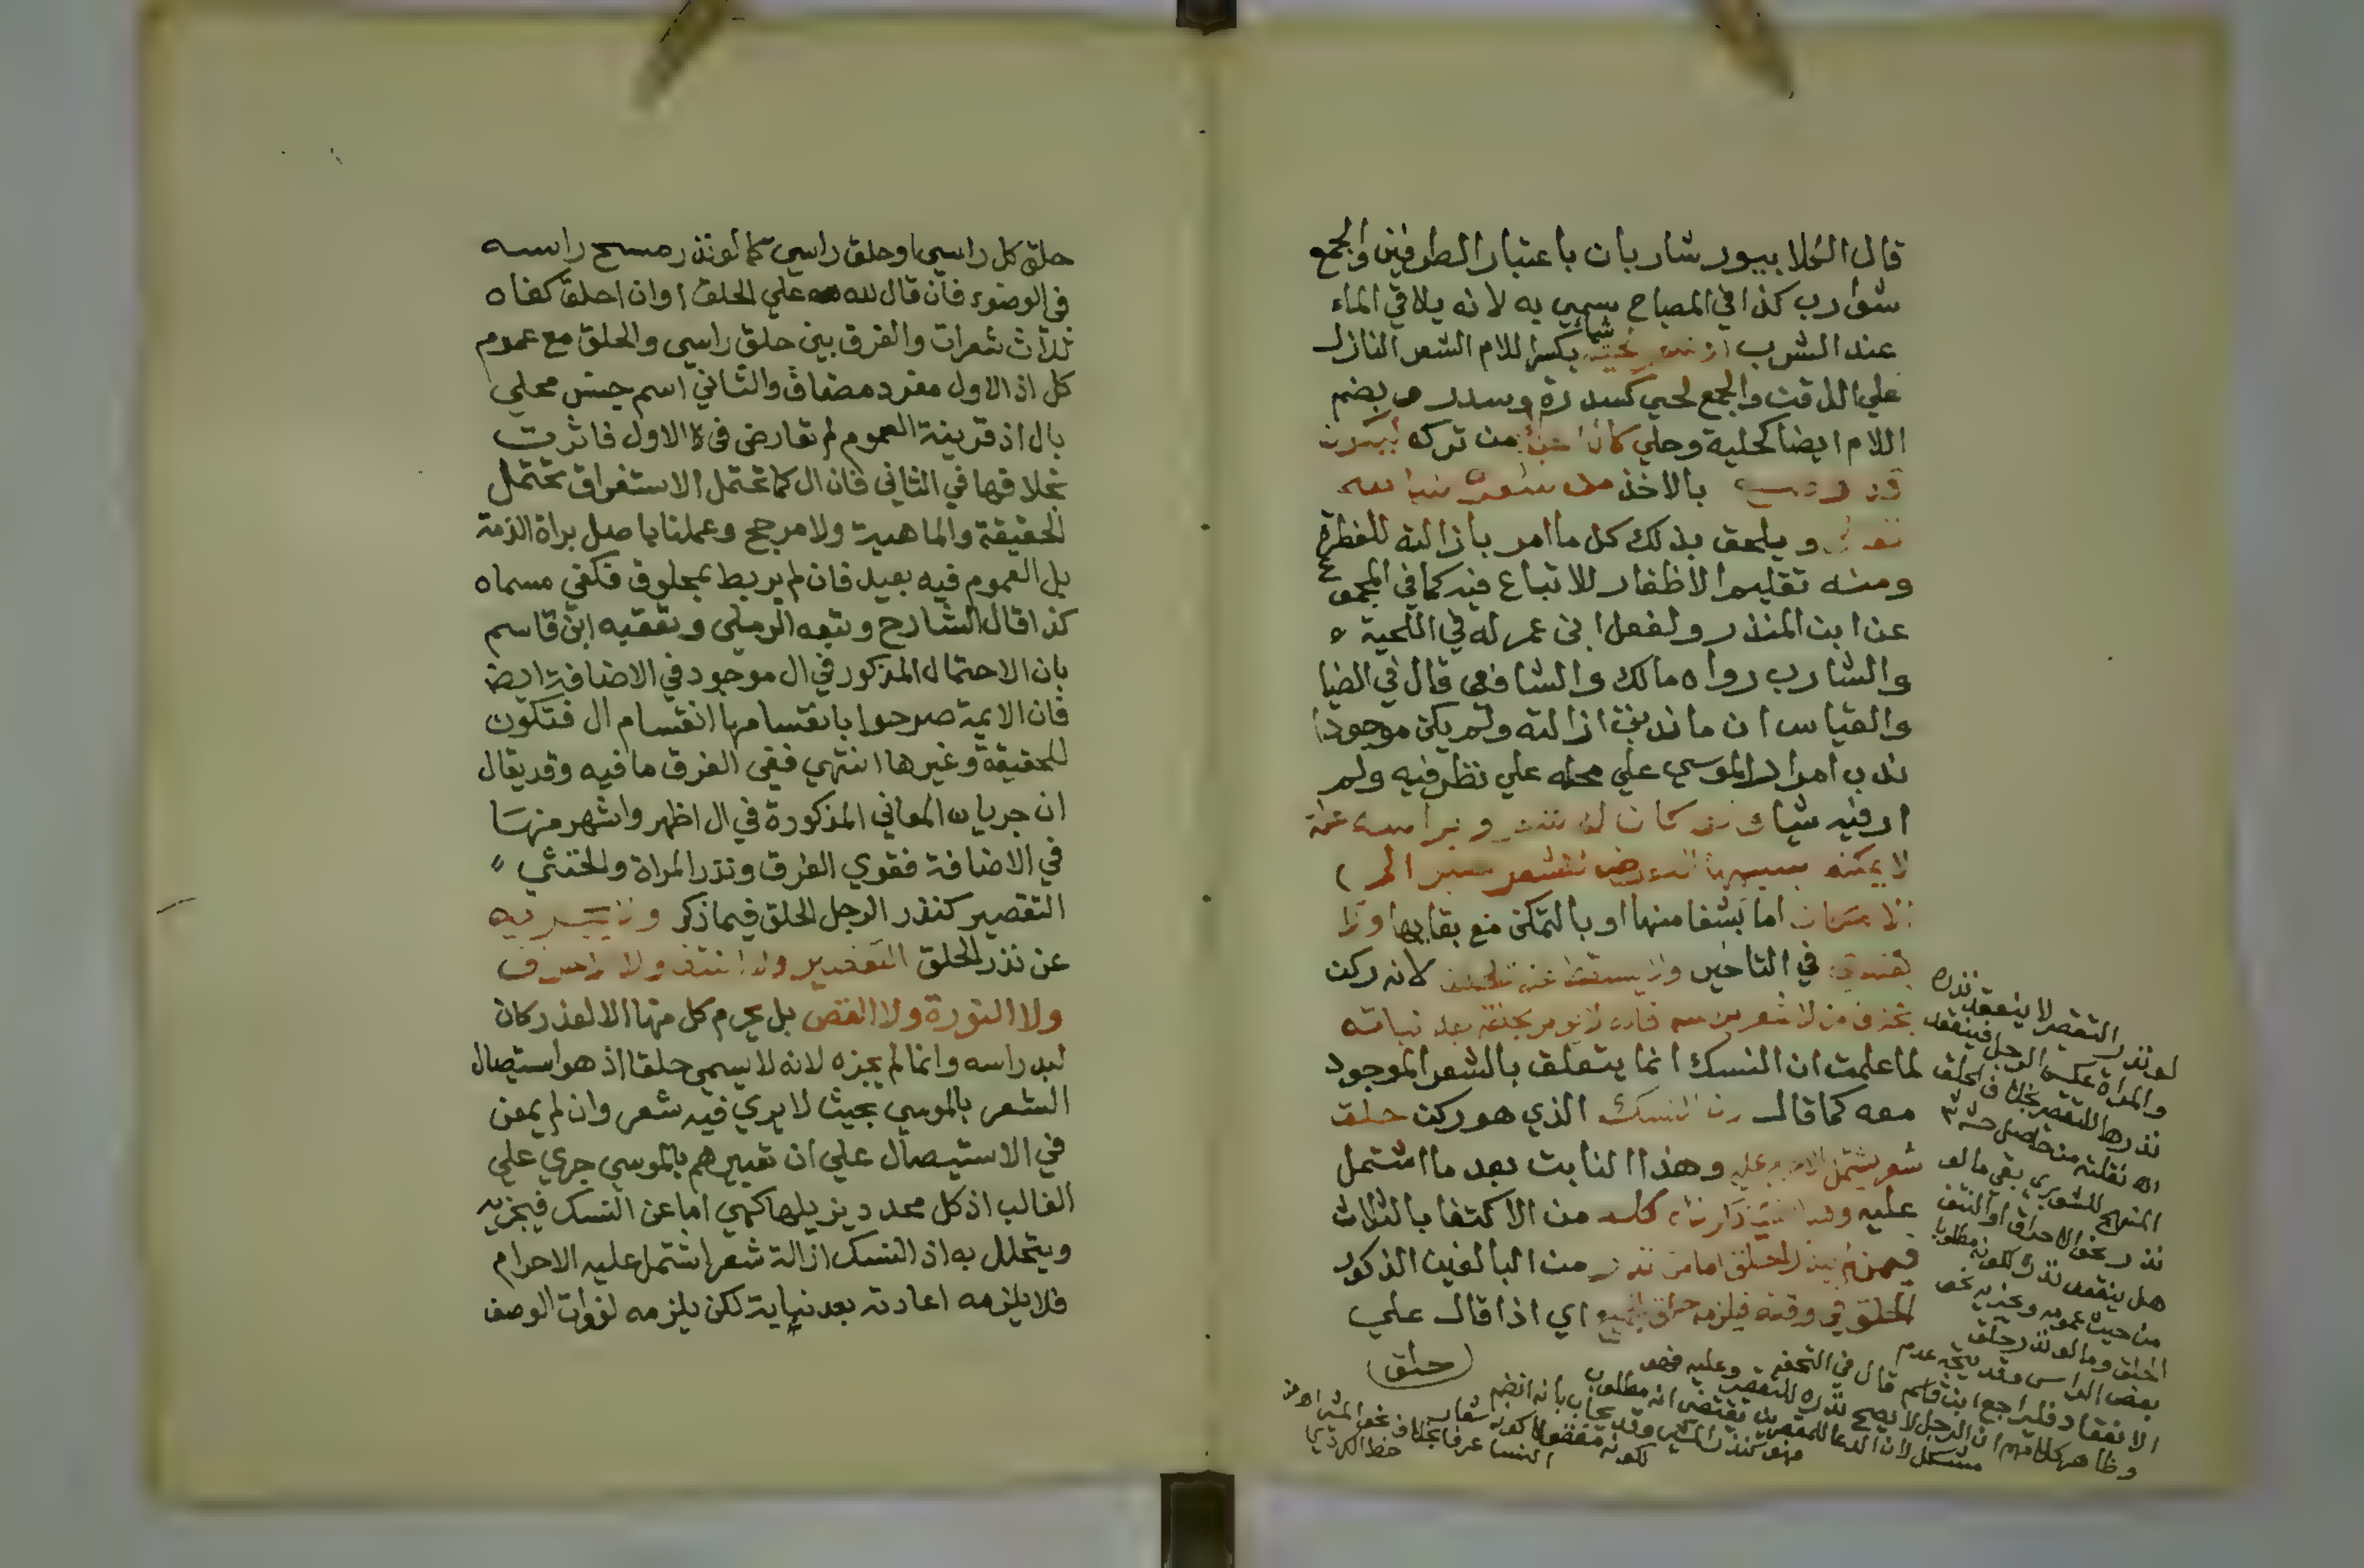 قال الكلابيون شاربان باعتبار الطرفين والجمع
شوارب كذا في المصباح سمي به لانه يلاقي الماء
عند الشرب او من لحيته شيا بكسر اللام الشعر النازل
علي الذقن والجمع لحي كسدرة وسدر وبضم
اللام ايضا كحلية وحلي كان من تركه
بالاخذ من شعره
ويلحق بذلك كل ما امر بازالته للفطرة
ومنه تقليم الاظفار للاتباع فيه كما في المجموع
عن ابن المنذر ولفعل ابن عمر له في اللحية
والشارب رواه مالك والشافعي قال في الضيا
والقياس ان ما ندبت ازالته ولم يكن موجودا
ندب امرار الموسي علي محله علي نظر فيه ولم
ار فيه شيا كان له شعر وبراسه علة
لا يمكنه بسببها التعرض للشعر صبر الي
الامكان اما بشفا منها او بالتمكن مع بقايها ولا
يفتدي في التاخير ولا يسقط عنه الحلق لانه ركن
بخلاف من لا شعر براسه فانه لا يومر بحلقه بعد نباته
لما علمت ان النسك انما يتعلق بالشعر الموجود
معه كما قال لان النسك الذي هو ركن حلق
شعر يشتمل الاحرام عليه وهذا النابت بعد ما اشتمل
عليه وهذا كله من الاكتفا بالثلاث
فيمن لم ينذر الحلق اما من نذر من البالغين الذكور
الحلق في وقته فيلزمه حلق الجميع اي اذا قال علي
حلق
لو نذر التقصير لا ينعقد نذره
والمراة عكس الرجل فينعقد
نذرها للتقصير بخلاف الحلق
اه نقلته من حاصل
المنهج للشوبري بقي ما لو
نذر نحو الاحراق او النتف
هل ينعقد نذره لكونه مطلوبا
من حيث عمومه ويجزيه نحو
الحلق وما لو نذر حلق
بعض الراس وقد يتجه عدم
الانعقاد فليراجع ابن قاسم قال في التحفة وعليه فهو
وظاهر كلامهم ان الرجل لا يصح نذره للتقصير
مشكل لان الدعا للمقصرين يقتضي انه مطلوب
فهو كنذر المشي وقد يجاب بانه انضم
لكونه مفضولا كونه شعار
النسا عرفا بخلاف نحو المشي اه من
خط الكردي
حلق كل راسي او حلق راسي كما لو نذر مسح راسه
في الوضوء فان قال لله علي الحلق او ان احلق كفاه
ثلاث شعرات والفرق بين حلق راسي والحلق مع عموم
كل اذ الاول مفرد مضاف والثاني اسم جنس محلي
بال اذ قرينة العموم لم تعارض في الاول فاثرت
بخلافها في الثاني فان ال كما تحتمل الاستغراق تحتمل
الحقيقة والماهية ولا مرجح وعملنا باصل براة الذمة
بل العموم فيه بعيد فان لم يربط بمحلوق فكفي مسماه
كذا قال الشارح وتبعه الرملي وتعقبه ابن قاسم
بان الاحتمال المذكور في ال موجود في الاضافة ايض
فان الايمة صرحوا بانقسامها انقسام ال فتكون
للحقيقة وغيرها انتهي ففي الفرق ما فيه وقد يقال
ان جريان المعاني المذكورة في ال اظهر واشهر منها
في الاضافة فقوي الفرق ونذر المراة والخنثي
التقصير كنذر الرجل الحلق فيما ذكر ولا يجزيه
عن نذر الحلق التقصير ولا النتف ولا الاحراق
ولا النورة ولا القص بل يحرم كل منها الا لعذر كان
لبد راسه وانما لم يجزه لانه لا يسمي حلقا اذ هو استيصال
الشعر بالموسي بحيث لا يري فيه شعر وان لم يمعن
في الاستيصال علي ان تعبيرهم بالموسي جري علي
الغالب اذ كل محدد يزيلها كهي اما عن النسك فيجزيه
ويتحلل به اذ النسك ازالة شعر اشتمل عليه الاحرام
فلا يلزمه اعادته بعد نباته لكن يلزمه لفوات الوصف